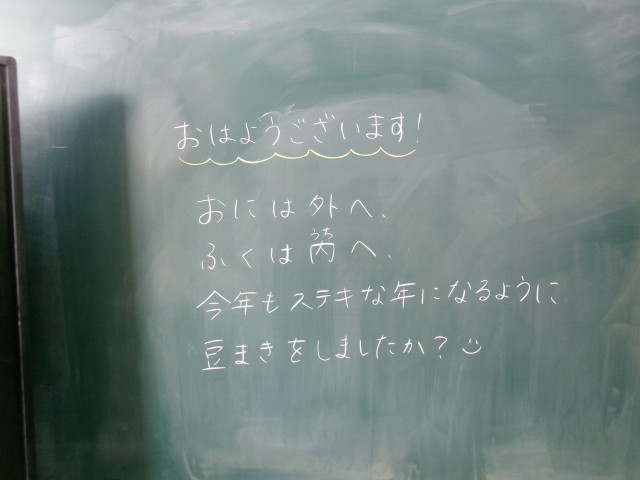 おはようございます!
おには外へ、
うち
ふくは内へ、
今年もステキな年になるように
豆まきをしましたか?